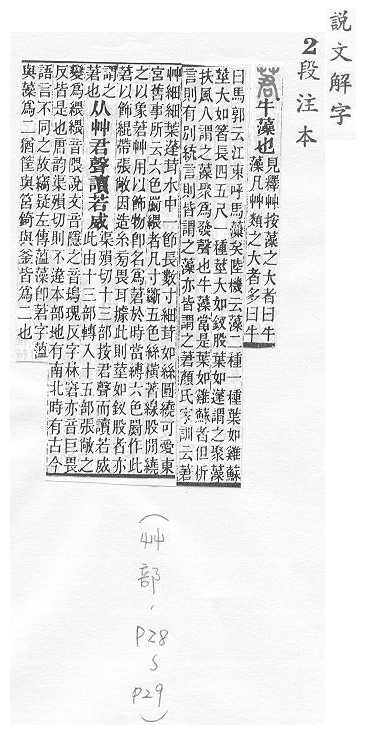 說文解字
2段注本
莙牛藻也見釋艸按藻之大者曰牛藻凡艸類之大者多曰牛
曰馬郭云江東呼馬藻矣陸機云藻二種一種葉如雞蘇
莖大如箸長四五尺一種莖大如釵股葉如蓬謂之聚藻
扶風人謂之藻聚爲發聲也牛藻當是葉如雞蘇者但析
言則有別統言則皆謂之藻亦皆謂之莙顏氏家訓云莙
艸細細葉蓬茸水中一節長數寸細茸如絲圓繞可愛東
宮舊事所云六色罽緦者凡寸斷五色絲橫著線股閒繞
之以象莙艸用以飾物卽名爲莙於時當紲六色罽作此
莙以飾緄帶張敞因造糸旁畏耳據此則莖如釵股者亦
謂之莙也从艸君聲讀若威此由十三部轉入十五部張敞之
變爲緦緦音隈說文音隱之音塢瑰反字林窘亦音巨畏
反皆是也唐韵渠殞切則不違本部地有南北時有古今
語言不同之故竊疑左傳薀藻卽莙字薀
與藻爲二猶筐與筥錡與釜皆爲二也
(艸部, P28~P29)